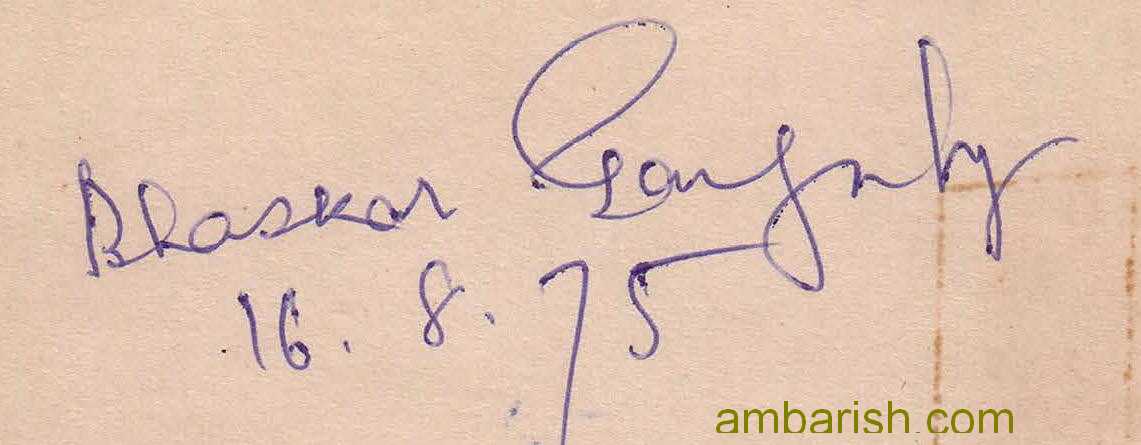 Bhaskar Ganguly
16. 8. 75
ambarish.com